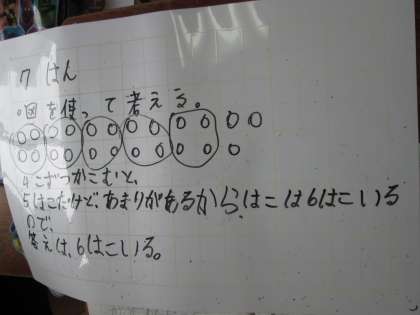 7 はん
○図を使って考える。
4こずつかこむと、
5はこだけど、あまりがあるから、はこは6はこいる
ので、
答えは、6はこいる。